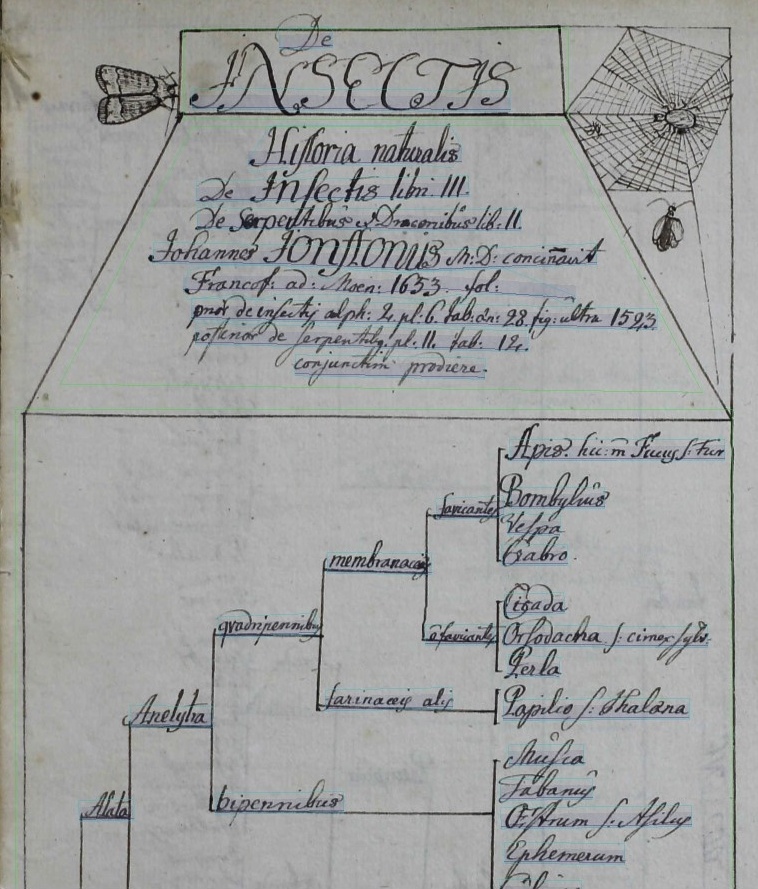 De
INSECTIS
Historia naturalis
De Insectis libri III.
De Serpentibus & Draconibus lib: II.
Johannes Jonstonus M: D: concinnavit
Francof: ad: Moen: 1653. fol:
prior de insectis alph: 2. pl: 6. tab: æn: 28. fig: ultra 1523.
posterior de serpentibq. pl. 11. tab: 12.
conjunctim prodiere.
Apis. hic: m̃ Fucus s: Fur
favicantes
Bombylius
Vespa
Crabro.
membranaceis
Cicada
quadripennibus
õ favicantes
Orsodacha s: cimex sylv:
Perla
farinaceis alis
Papilio s: Phalæna
Anelytra
Musca
Tabanus
bipennibus
Alata
Œstrum s: Asilus
Ephemerum